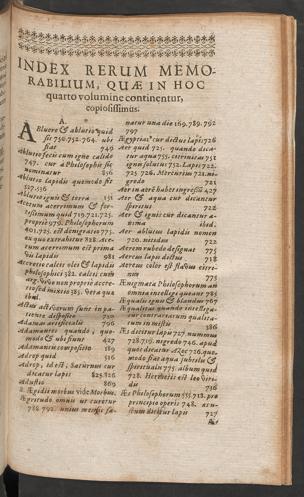 INDEX RERUM MEMO-
RABILIUM, QUÆ IN HOC
quarto volumine continentur,
copiosissimus.
A.
ABluere & abluria quid
sit 750.752.764. ubi
fiat 749
Ablutio feci cum igne calido
747. cur à Philosophis sic
nominatur 856
Ablutio lapidis quomodo fit
527.536
Ablutio ignis & terra 151
Acetum acerrimum & for-
tissimum quid 719.721.725.
proprie 979. Philosophorum
401.725. est
ex quo extrahitur 828. Ace-
tum acerrimum est prima
lapidis 981
Accrescit calor oles & lapidis
philosophici 382. calcis cum
argento non proprie accre-
tio sed mixtio 385. vera qua
ibid.
Actus activorum sunt in pa-
tiente disposito 720
Adamas artificialis 796
Adamantes quando, quo-
modo & ubi fiunt 427
Adamantis compositio 189
Adrop quid 516
Adrop, id est, Saturnus cur
dicatur lapis 825.826
Adustio 869
Ægidii morbus vide Morbus.
Ægritudo omnis ut curetur
786.792. unius mensis sa-
natur una die 169.789.792
797
Ægyptius cur dictus lapis 726
Aer quid 725. quando dica-
tur aqua 755. citrinitas 751
ignis solutus 752. Lapis 722.
725. 726. Mercurius 721. ni-
gredo 721
Aer in aëre habet ingressũ 427
Aer & aqua cur dicuntur
spiritus 722
Aer & ignis cur dicatur a-
nima ibid.
Aer albuius lapidis nomen
720. nitidus 722
Aerem rubeũ designat 775
Aereus lapis dictus 718
Aereus color est flavus citri-
nus 775
Ænigmata Philosophorum an
omnia intelligi queant 785
Æqualis ignis & blandus 769
Æqualitas quando intelliga-
tur contrariorum qualita-
tum in mistis 386
Æs dicitur lapis 727. nummus
728.729. nigredo 746. apud
quos dicatur Azoc 726. quo-
modo fiat aqua jubilea &
spiritualis 775. album quid
728. Hermetis est leo viri-
dis 736
Æs Philosophorum 555.718. pro
principio operis 748. æ-
stum dictus lapis 727